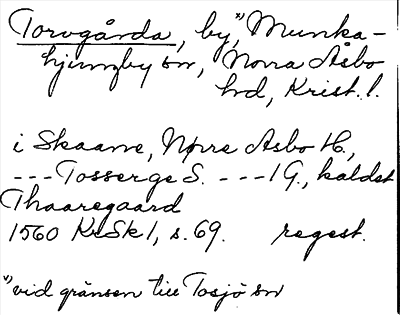 Torvgårda, by,*) Munka-
hjungby sn, Norra Åsbo
hd, Krist. l.
i Skaane, Nørre Asbo H.,
--- Tosserge S. --- 1 G., kaldet
Thaaregaard
1560 KrSk 1, s. 69. regest.
*) vid gränsen till Tosjö sn